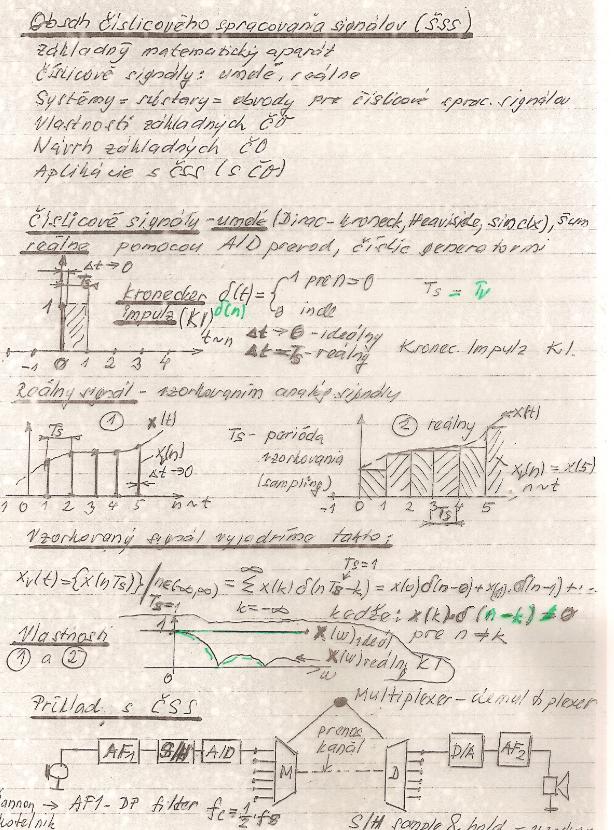 Obsah číslicového spracovania signálov (ČSS)
základný matematický aparát
číslicové signály: umelé, reálne
Systémy = sústavy = obvody pre číslicové sprac. signálov
Vlastnosti základných ČO
Návrh základných ČO
Aplikácie s ČSS (s ČO)
Číslicové signály - umelé (Dirac-Kroneck, Heaviside, sinc(x), šum
reálne pomocou A/D prevod, číslic generátormi
Δt→0
Ts
1
-1 0 1 2 3 4
Kronecker impulz (KI)
δ(t) = { 1 pre n=0
0 inde
δ(n)
t~n
Ts = Tv
Δt→0 - ideálny
Δt=Ts - reálny
Kronec. Impulz KI.
Reálny signál - vzorkovaním analóg signály
Ts
1
x(t)
x(n)
Δt→0
1 0 1 2 3 4 5 n~t
Ts - perióda
vzorkovania
(sampling)
2 reálny
x(t)
xv(n) = x(5)
n~t
-1 0 1 2 3 4 5
Ts
Vzorkovaný signál vyjadríme takto:
Ts=1
xv(t) = {x(nTs)}/n∈(-∞,∞) = ∑ x(k) δ(nTs-k) = x(0)δ(n-0)+x(1).δ(n-1)+...
Ts=1
k=-∞
∞
keďže: x(k).δ(n-k) = 0
pre n≠k
Vlastnosti
1 a 2
1
0
X(ω) ideál
X(ω) reáln. KI
ω
Príklad s ČSS
Multiplexer - demultiplexer
AF1 S/H A/D M prenos kanál D D/A AF2
AF1 - DP filter fc = 1/2 fs
S/H sample & hold